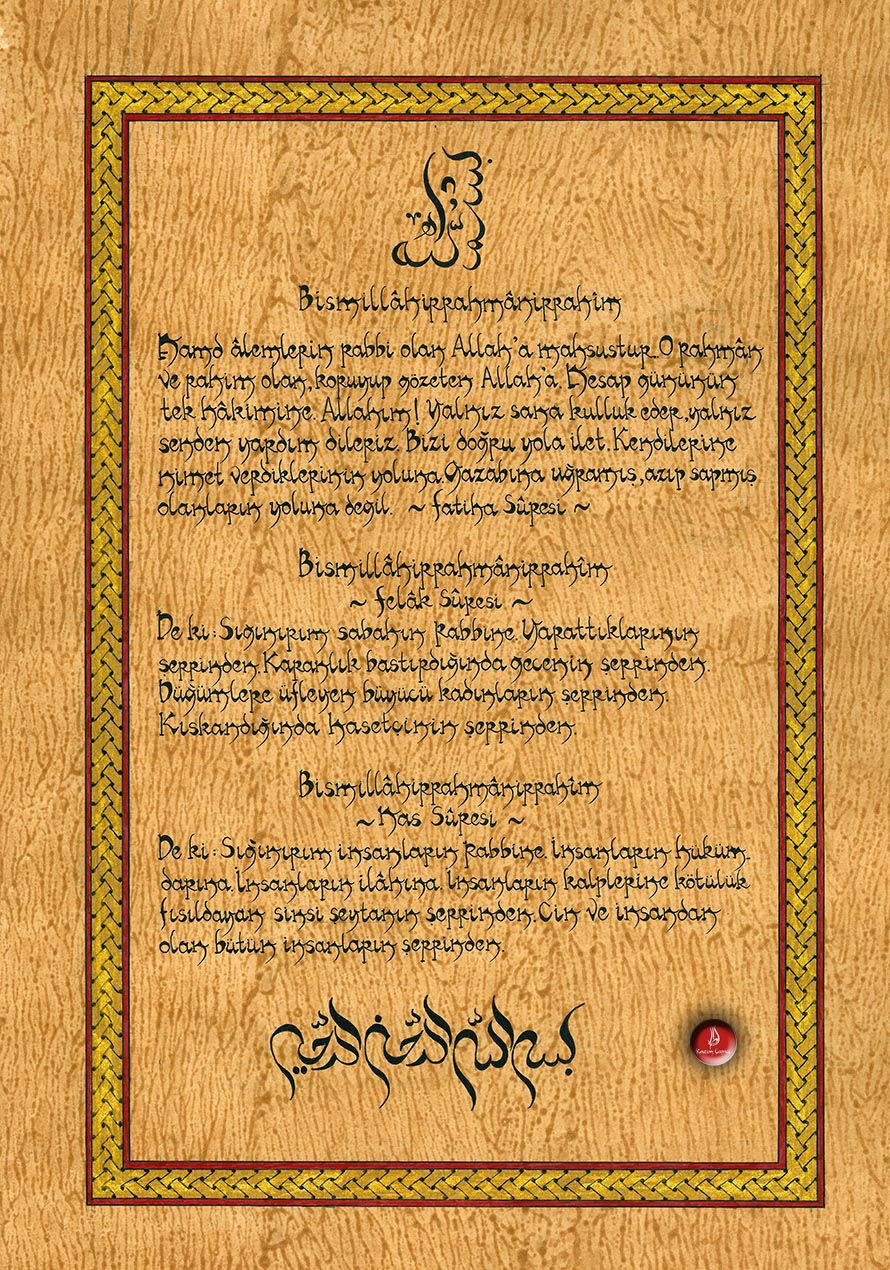 بسم الله
Bismillâhirrahmânirrahîm
Hamd âlemlerin rabbi olan Allah'a mahsustur. O rahmân
ve rahim olan, koruyup gözeten Allah'a. Hesap gününün
tek hâkimine. Allahım! Yalnız sana kulluk eder, yalnız
senden yardım dileriz. Bizi doğru yola ilet. Kendilerine
nimet verdiklerinin yoluna. Gazabına uğramış, azıp sapmış
olanların yoluna değil. ~ Fatiha Sûresi ~
Bismillâhirrahmânirrahîm
~ Felâk Sûresi ~
De ki: Sığınırım sabahın Rabbine. Yarattıklarının
şerrinden. Karanlık bastırdığında gecenin şerrinden.
Düğümlere üfleyen büyücü kadınların şerrinden.
Kıskandığında hasetçinin şerrinden.
Bismillâhirrahmânirrahîm
~ Nas Sûresi ~
De ki: Sığınırım insanların Rabbine. İnsanların hüküm-
darına. İnsanların ilâhına. İnsanların kalplerine kötülük
fısıldayan sinsi şeytanın şerrinden. Cin ve insandan
olan bütün insanların şerrinden.
بسم الله الرحمن الرحيم